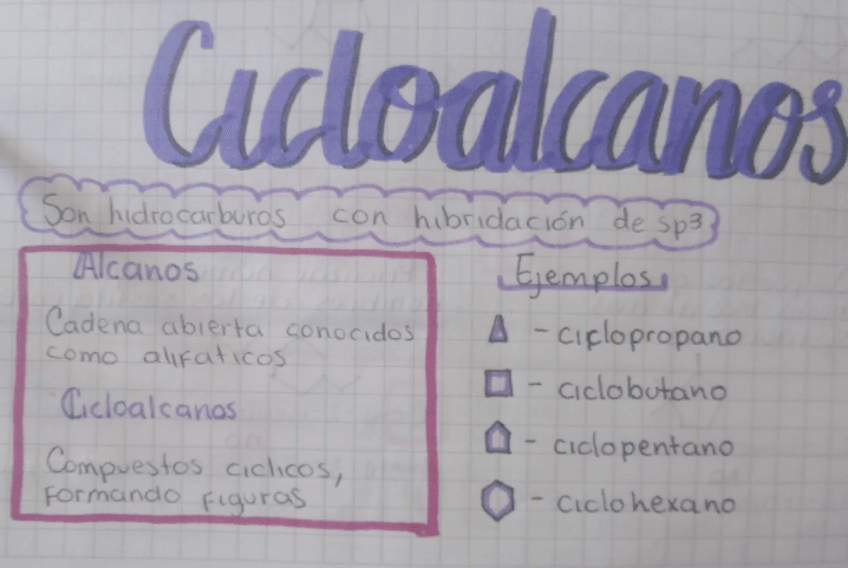 Cicloalcanos
Son hidrocarburos con hibridación de sp³
Alcanos
Cadena abierta conocidos
como alifaticos
Cicloalcanos
Compuestos ciclicos,
formando figuras
Ejemplos
- ciclopropano
- ciclobutano
- ciclopentano
- ciclohexano